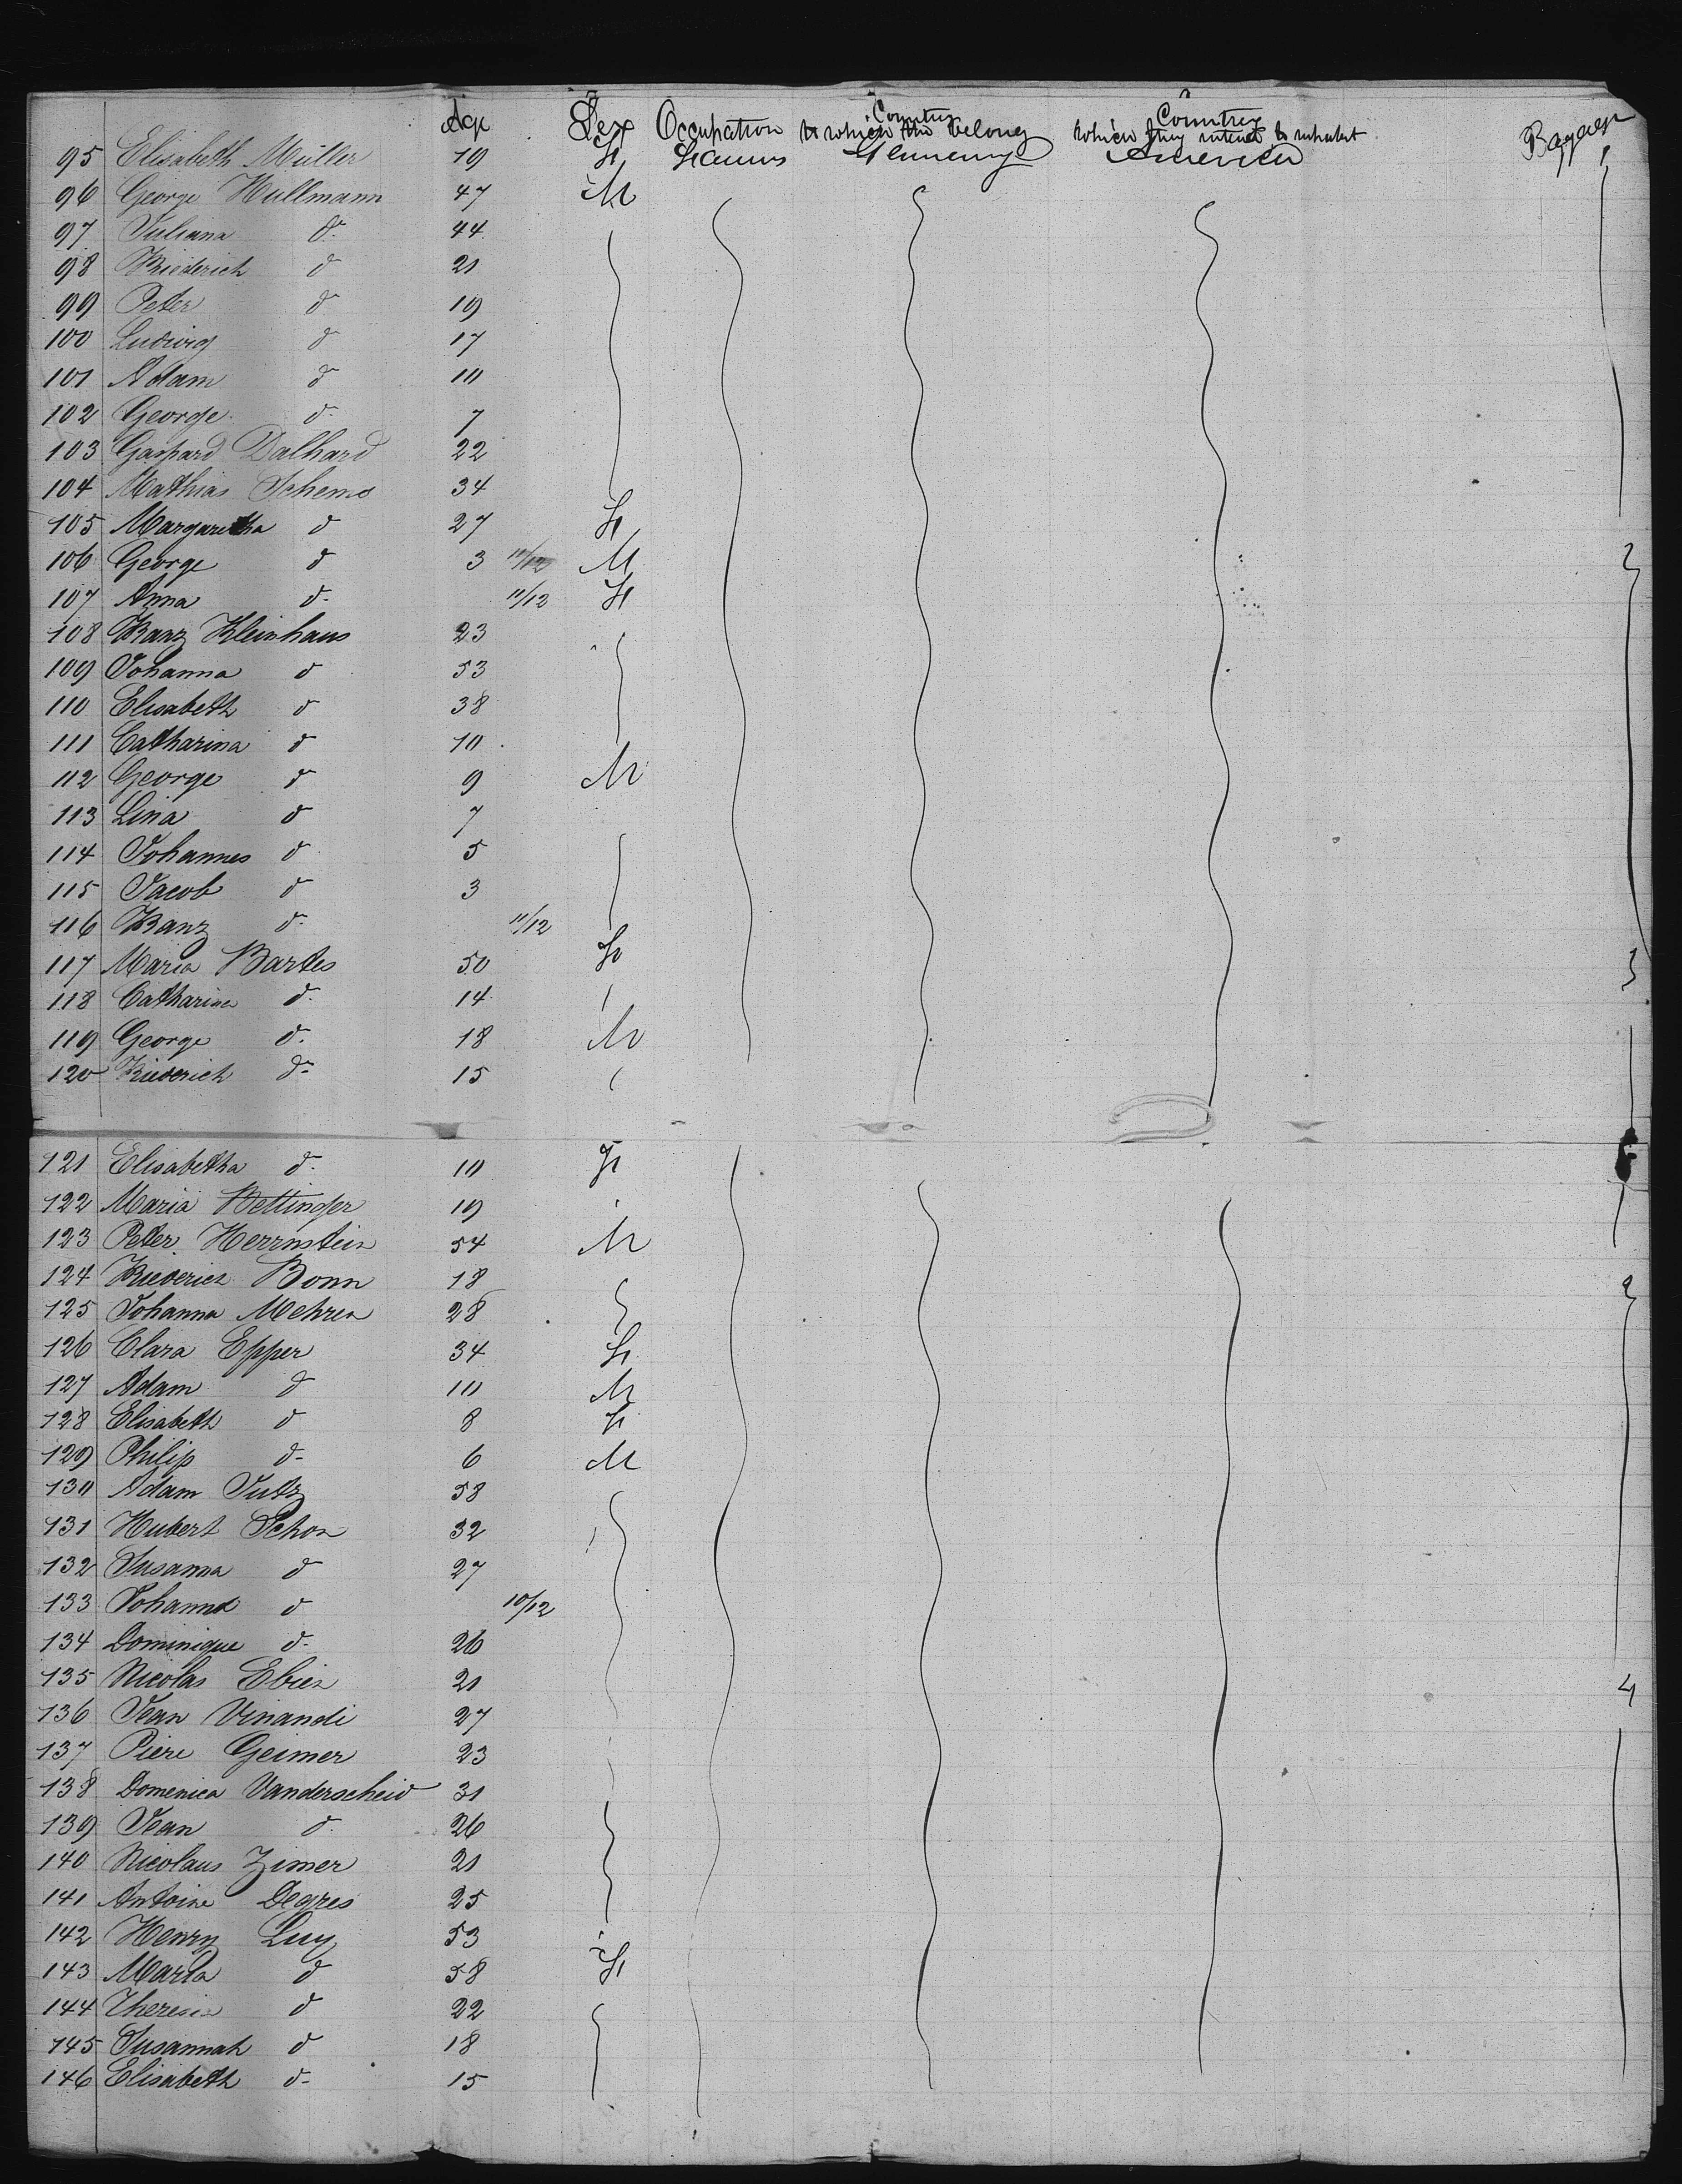 Age Sex Occupation Country to which they belong Country which they intend to inhabit Baggage
95 Elisabeth Müller 19 F Germany America 1
96 George Hullmann 47 M
97 Juliana do 44
98 Friederich do 21
99 Peter do 19
100 Ludwig do 17
101 Adam do 10
102 George do 7
103 Gaspard Dalhard 22
104 Mathias Schems 34
105 Margaretha do 27 F
106 George do 3 11/12 M 2
107 Anna do 11/12 F
108 Franz Kleinhaus 23
109 Johanna do 53
110 Elisabeth do 38
111 Catharina do 10
112 George do 9 M
113 Lina do 7
114 Johannes do 5
115 Jacob do 3
116 Franz do 11/12
117 Maria Bartes 50 F 3
118 Catharina do 14
119 George do 18 M
120 Friederich do 15
121 Elisabetha do 10 F
122 Maria Bettinger 19
123 Peter Herrnstein 54 M
124 Friederich Bonn 18 2
125 Johanna Mehren 28
126 Clara Epper 34 F
127 Adam do 10 M
128 Elisabeth do 8 F
129 Philip do 6 M
130 Adam Jutz 58
131 Hubert Schon 32
132 Susanna do 27
133 Johanna do 10/12
134 Dominique do 26
135 Nicolas Ebien 21 4
136 Jean Vinandi 27
137 Piere Geimer 23
138 Domenica Vanderscheid 31
139 Jean do 26
140 Nicolaus Zimer 21
141 Antoine Degres 25
142 Henry Luy 53
143 Maria do 58 F
144 Theresia do 22
145 Susannah do 18
146 Elisabeth do 15